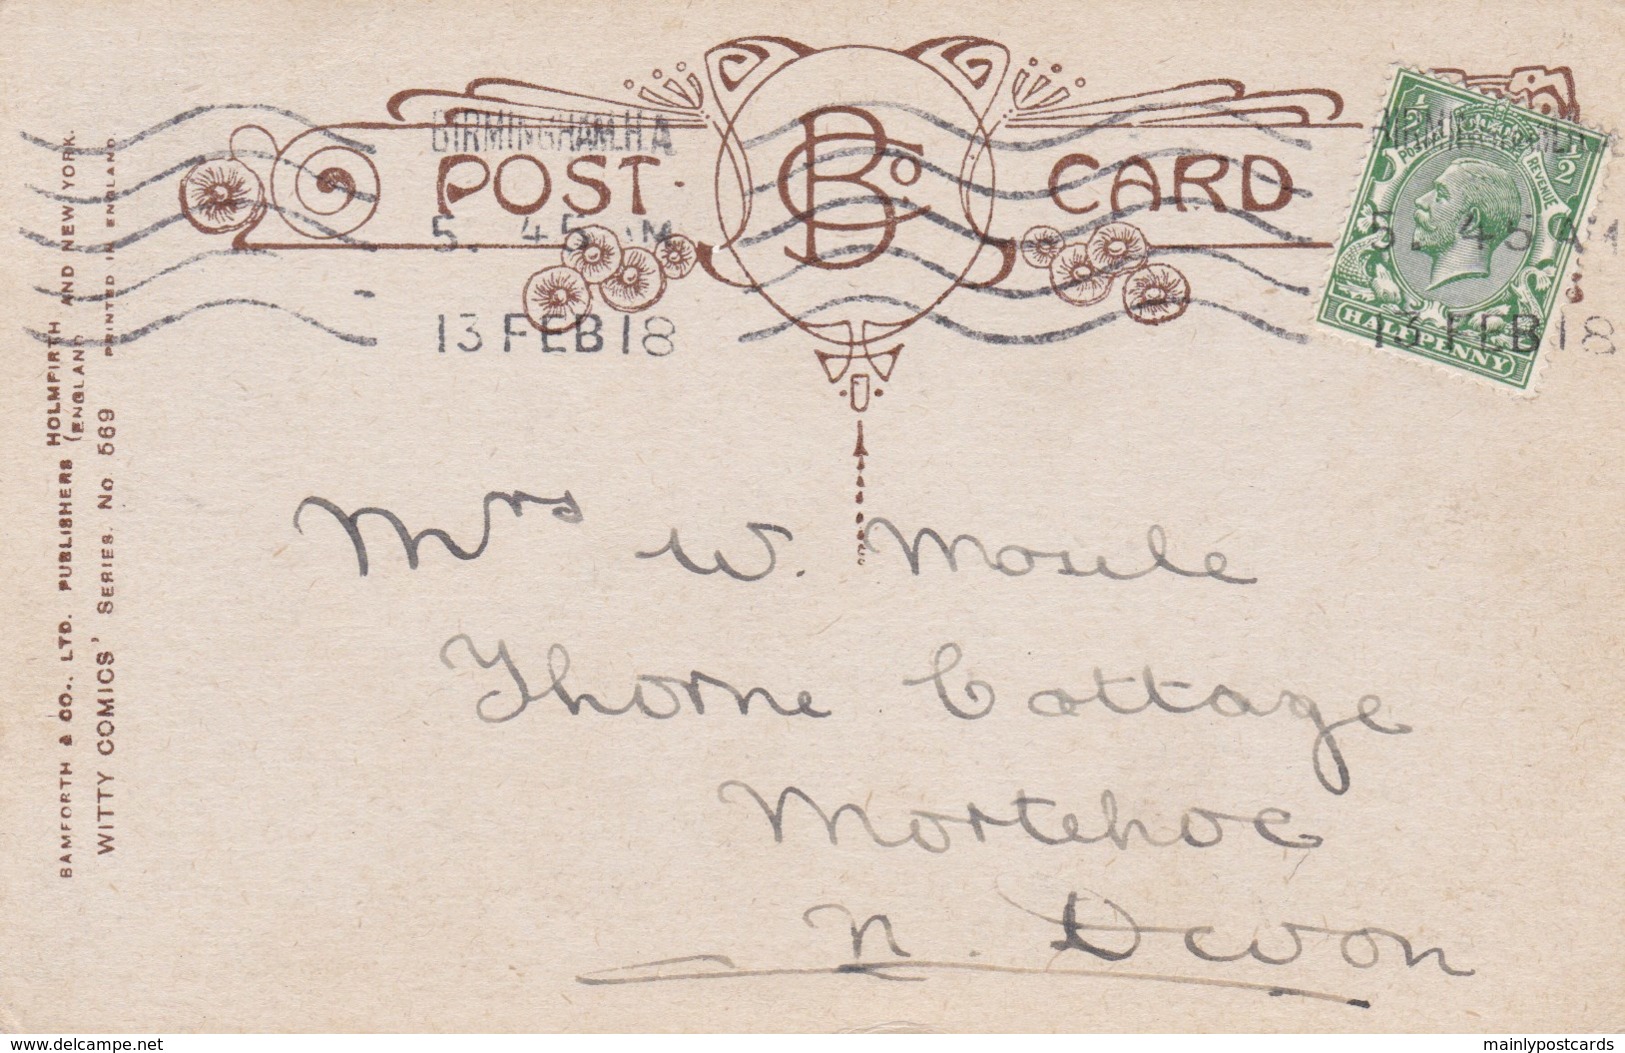 BIRMINGHAM.H.A
5. 45 M
13 FEB 18
POST
B Co.
CARD
1/2
1/2
POSTAGE
REVENUE
HALFPENNY
5. 45 A
13 FEB 18
BAMFORTH & CO., LTD. PUBLISHERS HOLMFIRTH (ENGLAND) AND NEW YORK.
WITTY COMICS' SERIES. No 569 PRINTED IN ENGLAND
Mrs W. Mosile
Thorne Cottage
Mortehoe
N. Devon
www.delcampe.net
mainlypostcards